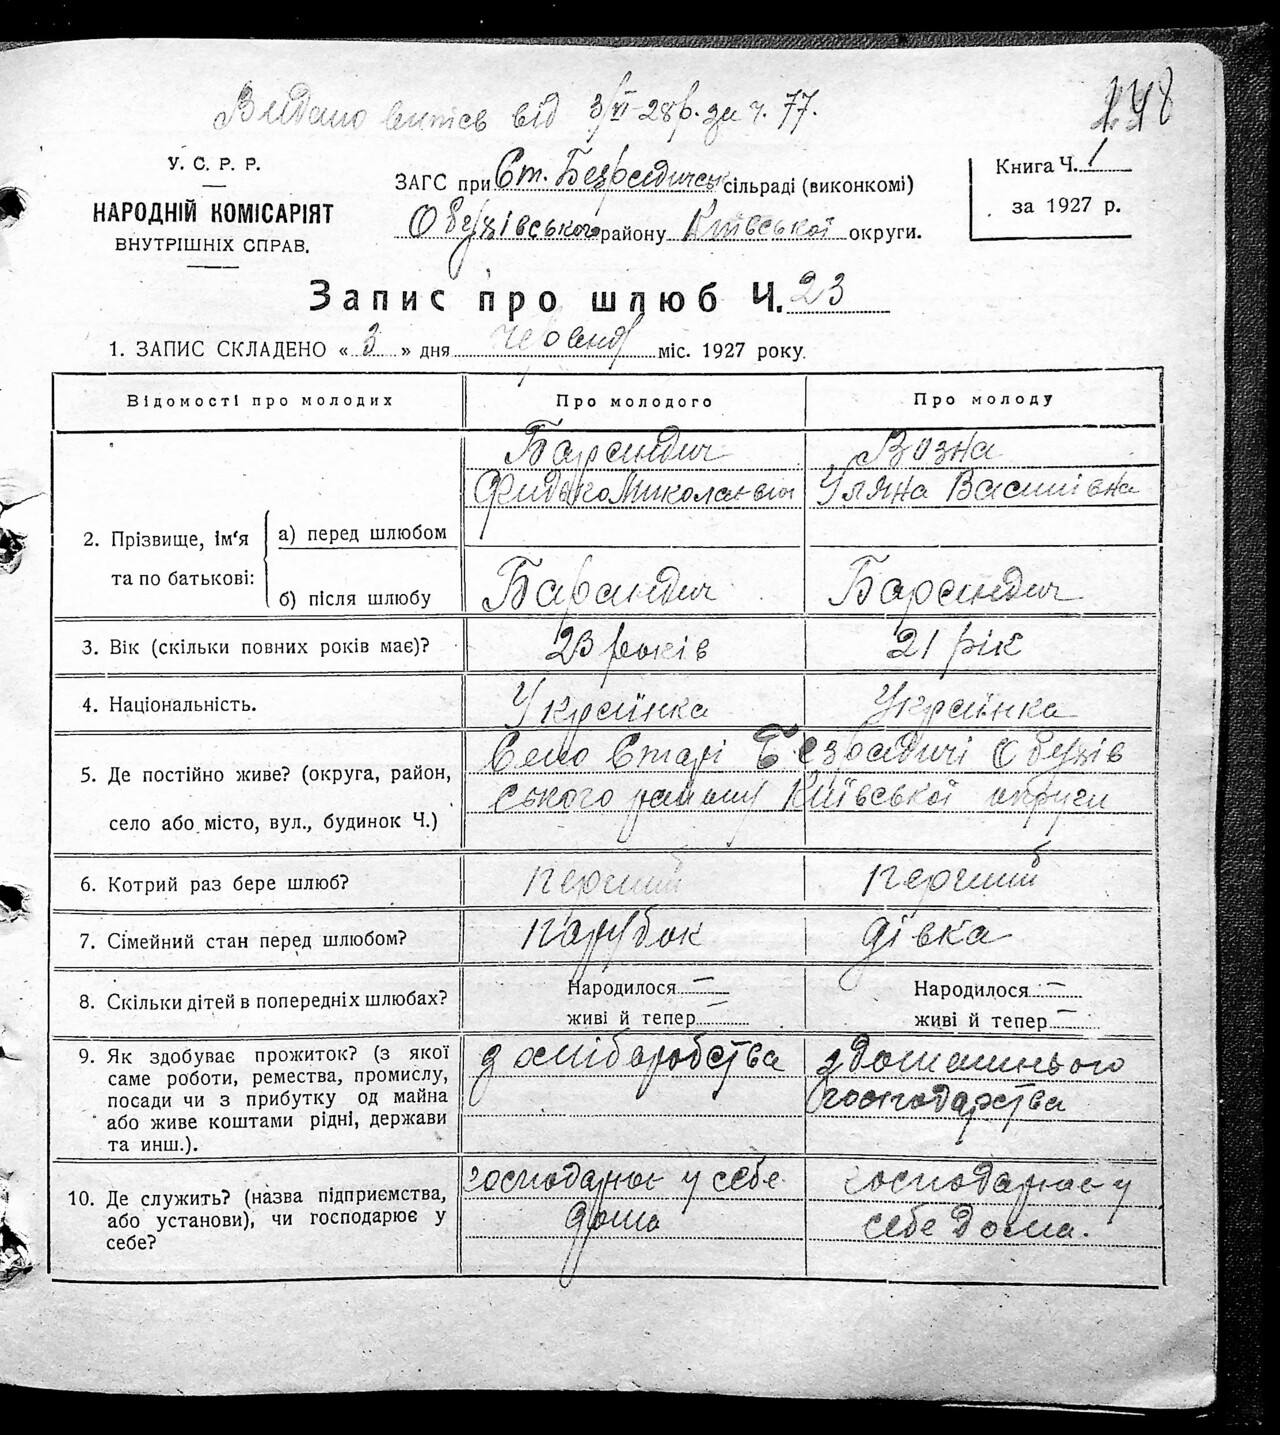 Видано витяг від 3/VI-28р. за ч. 77.
148
У. С. Р. Р.
НАРОДНІЙ КОМІСАРІЯТ
ВНУТРІШНІХ СПРАВ.
ЗАГС при Ст. Безрадичськ сільраді (виконкомі)
Обухівського району Київської округи.
Книга Ч. 1
за 1927 р.
Запис про шлюб Ч. 23
1. ЗАПИС СКЛАДЕНО « 3 » дня червня міс. 1927 року.
Відомості про молодих
Про молодого
Про молоду
2. Прізвище, ім'я та по батькові:
а) перед шлюбом
Барандич
Федько Миколаєвич
Возна
Уляна Василівна
б) після шлюбу
Барандич
Барандич
3. Вік (скільки повних років має)?
23 років
21 рік
4. Національність.
Українка
Українка
5. Де постійно живе? (округа, район,
село або місто, вул., будинок Ч.)
Село Старі Безрадичі Обухів
ського району Київської округи
6. Котрий раз бере шлюб?
перший
перший
7. Сімейний стан перед шлюбом?
парубок
дівка
8. Скільки дітей в попередніх шлюбах?
Народилося —
живі й тепер —
Народилося —
живі й тепер —
9. Як здобуває прожиток? (з якої
саме роботи, ремества, промислу,
посади чи з прибутку од майна
або живе коштами рідні, держави
та инш.).
з хліборобства
з домашнього
господарства
10. Де служить? (назва підприємства,
або установи), чи господарює у
себе?
господарює у себе
дома
господарює у
себе дома.